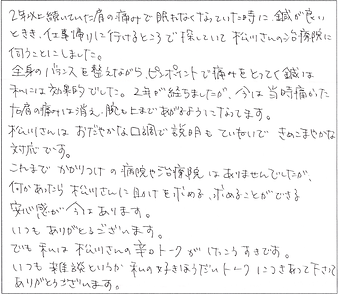 2年以上続いていた肩の痛みで眠れなくなっていた時に鍼が良い
ときき、仕事帰りに行けるところで探していて松川さんの治療院に
伺うことにしました。
全身のバランスを整えながら、ピンポイントで痛みをとってく鍼は
私には効果的でした。2年が経ちましたが、今は当時痛かった
た肩の痛みは消え、腕も上まであがるようになってます。
松川さんは おだやかな口調で説明もていねいで きめこまやかな
対応です。
これまで かかりつけの病院や治療院はありませんでしたが、
何かあったら 松川さんに助けを求める、求めることができる
安心感が今はあります。
いつもありがとうございます。
でも 私は 松川さんの辛口トークが けっこうすきです。
いつも 雑談というか 私の好きほうだいトークにつきあって下さり
ありがとうございます。